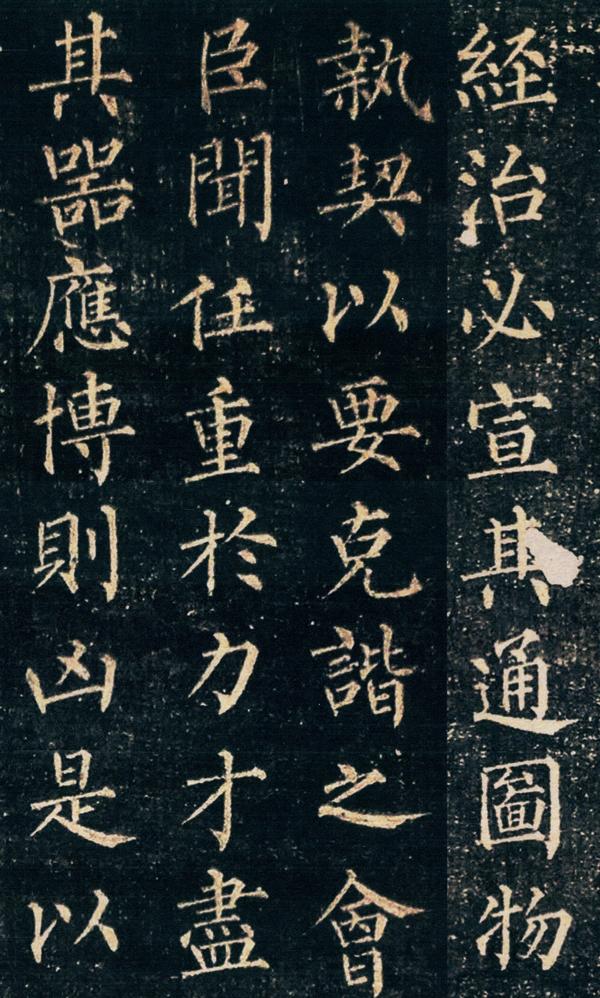 経治必宣其通圖物
執契以要克諧之會
臣聞任重於力才盡
其器應博則凶是以